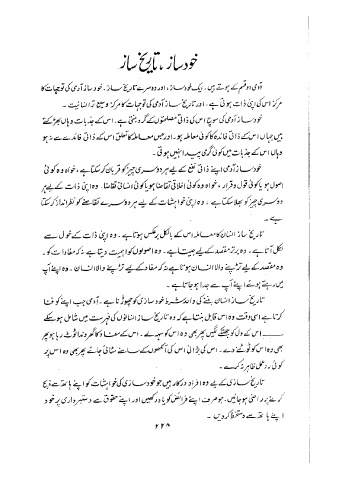 خود ساز، تاریخ ساز
آدمی دو قسم کے ہوتے ہیں۔ ایک خود ساز، اور دوسرے تاریخ ساز۔ خود ساز آدمی کی توجہات کا
مرکز اس کی اپنی ذات ہوتی ہے، اور تاریخ ساز آدمی کی توجہات کا مرکز وسیع تر انسانیت۔
خود ساز آدمی کی سوچ اس کی ذاتی مصلحتوں کے گرد بنتی ہے۔ اس کے جذبات وہاں بھڑکتے
ہیں جہاں اس کے ذاتی فائدہ کا کوئی معاملہ ہو۔ اور جس معاملہ کا تعلق اس کے ذاتی فائدے سے نہ ہو
وہاں اس کے جذبات میں کوئی گرمی پیدا نہیں ہوتی۔
خود ساز آدمی اپنے ذاتی نفع کے لیے ہر دوسری چیز کو قربان کر سکتا ہے، خواہ وہ کوئی
اصول ہو یا کوئی قول و قرار، خواہ وہ کوئی اخلاقی تقاضا ہو یا کوئی انسانی تقاضا۔ وہ اپنی ذات کے لیے ہر
دوسری چیز کو بھلا سکتا ہے۔ وہ اپنی خواہشات کے لیے ہر دوسرے تقاضے کو نظر انداز کر سکتا
ہے۔
تاریخ ساز انسان کا معاملہ اس کے بالکل برعکس ہوتا ہے۔ وہ اپنی ذات کے خول سے
نکل آتا ہے۔ وہ برتر مقصد کے لیے جیتا ہے۔ وہ اصولوں کو اہمیت دیتا ہے نہ کہ مفادات کو۔
وہ مقصد کے لیے تڑپنے والا انسان ہوتا ہے نہ کہ مفاد کے لیے تڑپنے والا انسان۔ وہ اپنے آپ
میں رہتے ہوئے اپنے آپ سے جدا ہو جاتا ہے۔
تاریخ ساز انسان بننے کی واحد شرط خود سازی کو چھوڑنا ہے۔ آدمی جب اپنے کو فنا
کرتا ہے اسی وقت وہ اس قابل بنتا ہے کہ وہ تاریخ ساز انسانوں کی فہرست میں شامل ہو سکے
اس کے دل کو جھٹکے لگیں پھر بھی وہ اس کو سہہ لے۔ اس کے مفاد کا گھروندا ٹوٹ رہا ہو پھر
بھی وہ اس کو ٹوٹنے دے۔ اس کی بڑائی اس کی آنکھوں کے سامنے مٹائی جائے پھر بھی وہ اس پر
کوئی ردعمل ظاہر نہ کرے۔
تاریخ سازی کے لیے وہ افراد درکار ہیں جو خود سازی کی خواہشات کو اپنے ہاتھ سے ذبح
کرنے پر راضی ہو جائیں، جو صرف اپنے فرائض کو یاد رکھیں اور اپنے حقوق سے دستبرداری پر خود
اپنے ہاتھ سے دستخط کر دیں۔
۲۲۹